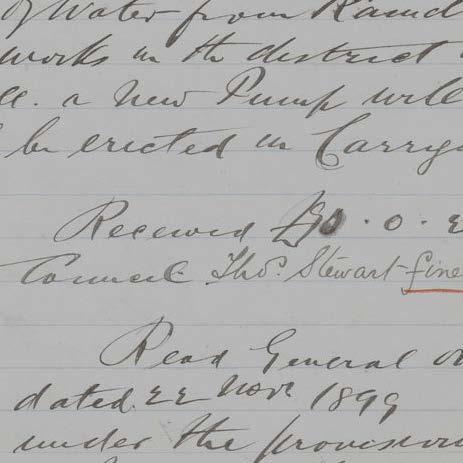 of Water from
works in the district
a new Pump will
be erected in
Received · 0 ·
Council Thos. Stewart fine
Read General
dated 22 Novr 1899
under the provision